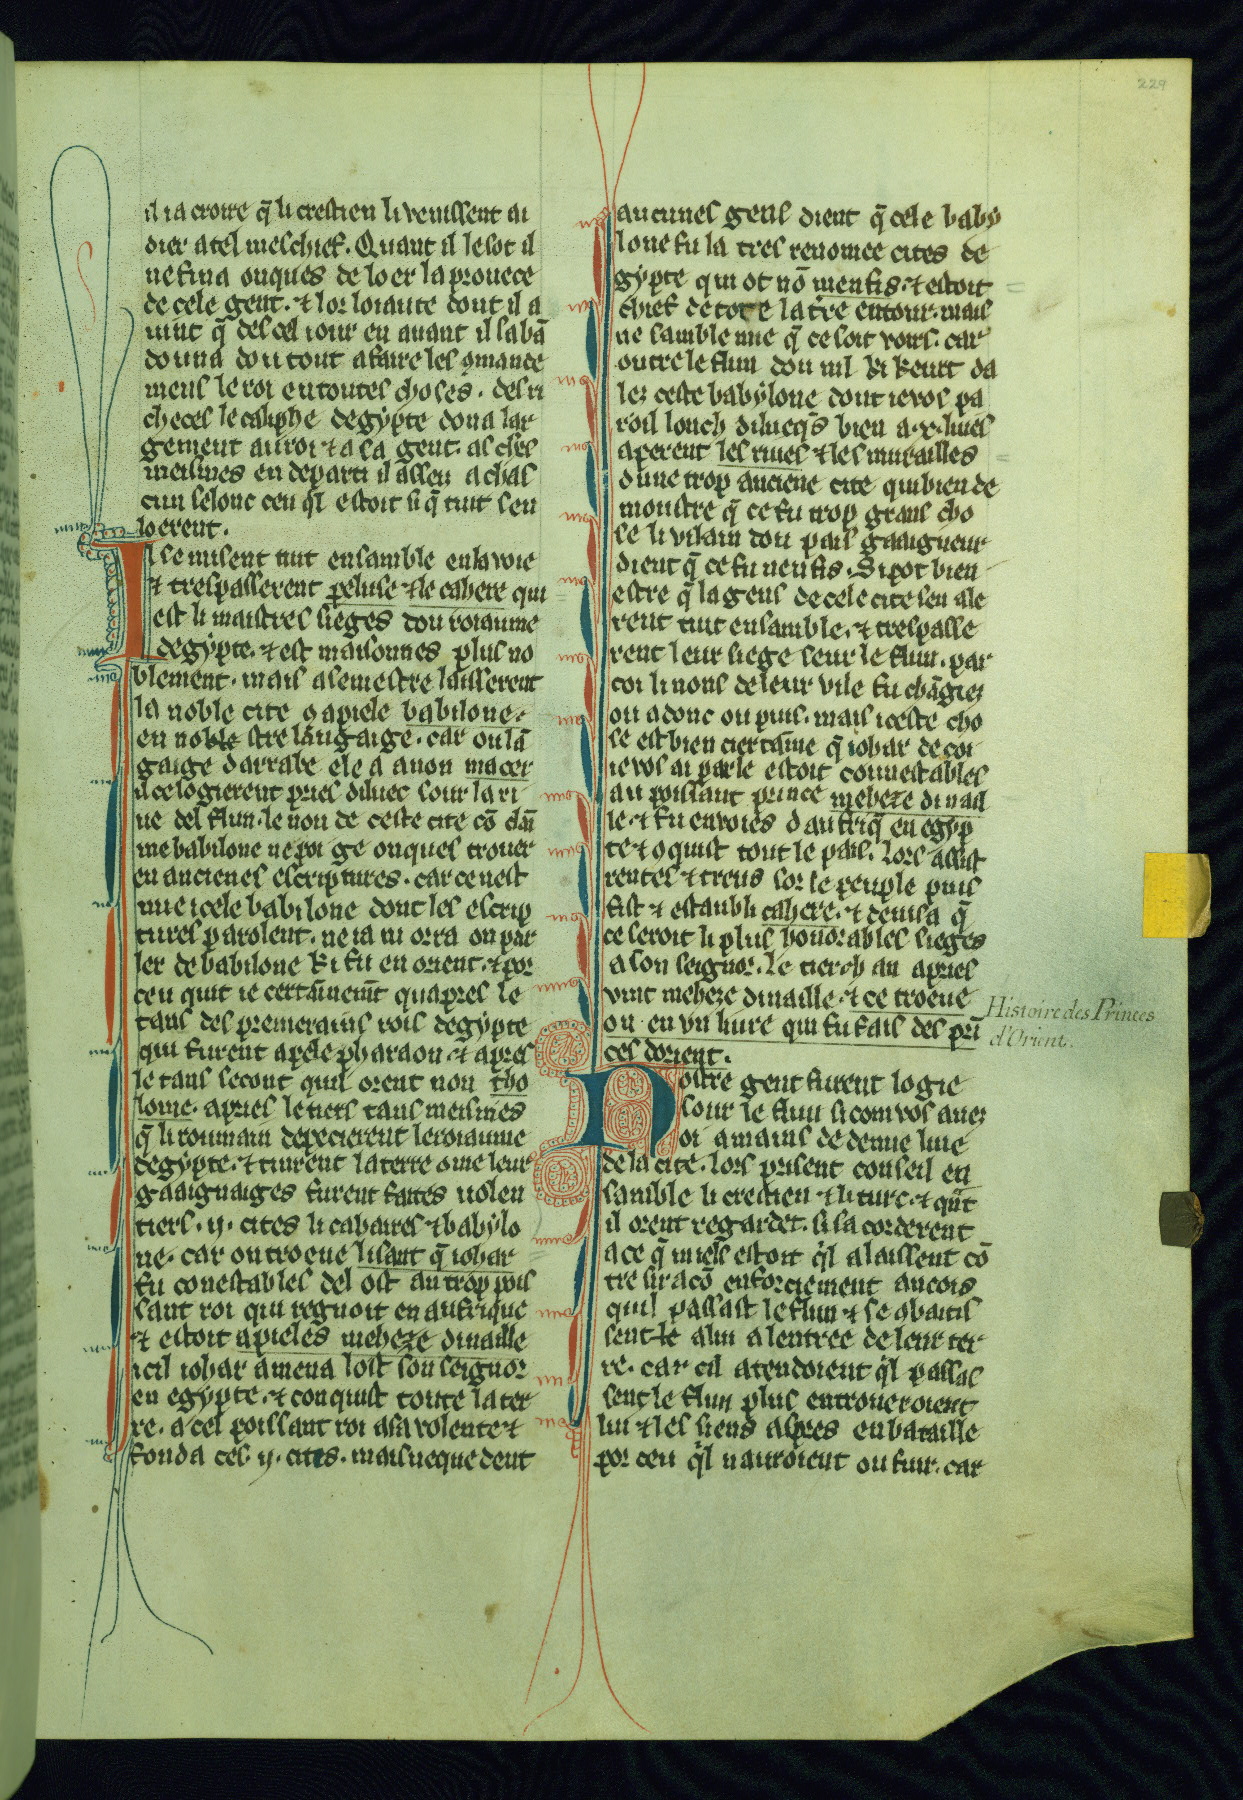 229
il ia croire q̄ li crestien li venissent ai
dier a tel meschief. Quant il le sot il
ne fina onques de loer la prouece
de cele gent. ⁊ lor loiaute dont il a
uint q̄ des cel iour en auant il sabā
douna dou tout a faire les ꝯmande
mens le roi en toutes choses. des ri
checes le caliphe degypte dona lar
gement au roi ⁊ a sa gent. as chrs
meismes en departi il assen a chas
cun selonc ceu ql estoit si q̄ tuit sen
loerent.
Il se misent tuit ensamble en la voie
⁊ trespasserent peluse ⁊ le cahere qui
est li maistres sieges dou roiaume
degypte. ⁊ est maisonnes plus no
blement. mais a semestre laisserent
la noble cite ꝯ apiele babilone.
en noble stre lāngaige. car ou lā
gaige darrabe ele a a non macer
il ce logierent pries diluec sour la ri
ue del flun. le non de ceste cite cō clāi
me babilone ne poi ge onques trouer
en ancienes escriptures. car ce nest
mie icele babilone dont les escrip
tures parolent. ne ia ni orra on par
ler de babilone ki fu en orient. ⁊ por
ceu quit ie certāinem̄t quapres le
tans des premerains rois degypte
qui furent apele pharaon. ⁊ apres
le tans secont quil orent non tho
lome. apries le tiers tans meismes
q̄ li roumain depecierent le roiaume
degypte. ⁊ tinrent la terre ꝯme leur
gaaignaiges furent faites uolen
tiers .ij. cites li cahaires ⁊ babylo
ne. car on troeue lisant q̄ iohar
fu conestables del ost au trop pois
sant roi qui regnoit en aufrique
⁊ estoit apieles meheze dinaille
icil iohar amena lost son seignor
en egypte. ⁊ conquist toute la ter
re. a cel poissant roi a sa volente ⁊
fonda ces .ij. cites. mais neque dent
aucunes gens dient q̄ cele baby
lone fu la tres renomee cites de
gypte qui ot nō menfis. ⁊ estoit
chief de tote la t̄re entour. mais
ne samble mie q̄ ce soit voirs. car
outre le flun dou nil ki keurt da
les ceste babylone dont ie vos pa
roil lonch diluecq̄s bien a .x. liues
aperent les riues ⁊ les murailles
dune trop anciene cite qui bien de
moustre q̄ ce fu trop grans cho
se li vilain dou pais gaaigneur
dient q̄ ce fu nenfis. Si pot bien
estre q̄ la gens de cele cite sen ale
rent tuit ensamble. ⁊ trespasse
rent leur siege seur le flun. par
coi li nons de leur vile fu chāgies
ou adonc ou puis. mais iceste cho
se est bien certāine q̄ iohar de coi
ie vos ai parle estoit connestables
au poissant prince meheze dinail
le. ⁊ fu envoies daufriq̄ en egyp
te ⁊ ꝯquist tout le pais. Lors assist
rentes ⁊ treus sor le peuple puis
fist ⁊ estaubli cahere. ⁊ deuisa q̄
ce seroit li plus honorables sieges
a son seignor. le tierch an apries
vint meheze dinaille. ⁊ ce troeue
on en vn liure qui fu fais des prī
ces dorient.
Histoire des Princes
d'Orient.
Nostre gent furent logie
sour le flun si com vos aues
oi a mains de demie liue
de la cite. lors prisent conseil en
samble li crestien ⁊ li turc. ⁊ qn̄t
il orent regardet. si sa corderent
a ce q̄ miels estoit ql alaissent cō
tre siracō enforciement ancois
quil passast le flun ⁊ se ꝯbatis
sent a lui a lentree de leur ter
re. car cil atendoient ql passas
sent le flun plus entroueroient
lui ⁊ les siens aspres en bataille
por ceu ql nauroient ou fuir. car